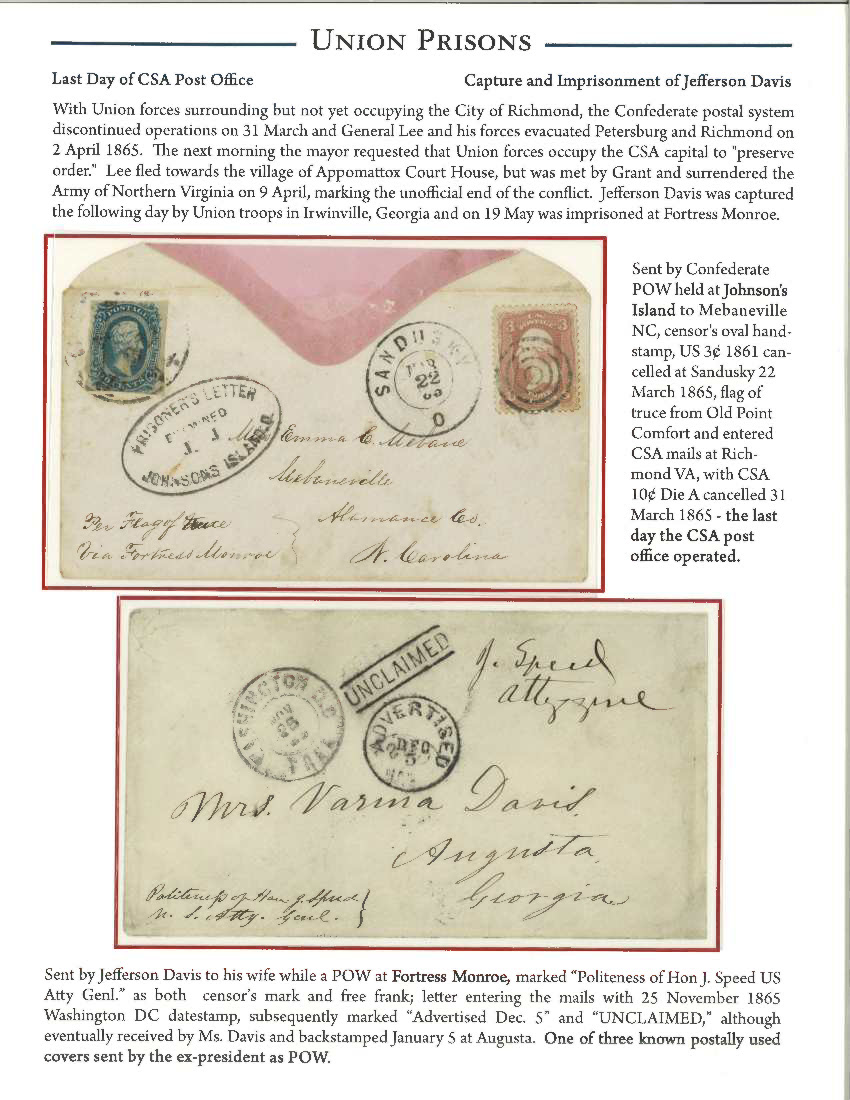 UNION PRISONS
Last Day of CSA Post Office
Capture and Imprisonment of Jefferson Davis
With Union forces surrounding but not yet occupying the City of Richmond, the Confederate postal system
discontinued operations on 31 March and General Lee and his forces evacuated Petersburg and Richmond on
2 April 1865. The next morning the mayor requested that Union forces occupy the CSA capital to "preserve
order." Lee fled towards the village of Appomattox Court House, but was met by Grant and surrendered the
Army of Northern Virginia on 9 April, marking the unofficial end of the conflict. Jefferson Davis was captured
the following day by Union troops in Irwinville, Georgia and on 19 May was imprisoned at Fortress Monroe.
POSTAGE
SANDUSKY
MAR
22
O
3 3
PRISONER'S LETTER
EXAMINED
JOHNSONS ISLAND.O.
Miss Emma C. Mebane
Mebaneville
Alamance Co.
N. Carolina
Per Flag of truce
Via Fortress Monroe
Sent by Confederate
POW held at Johnson's
Island to Mebaneville
NC, censor's oval hand-
stamp, US 3¢ 1861 can-
celled at Sandusky 22
March 1865, flag of
truce from Old Point
Comfort and entered
CSA mails at Rich-
mond VA, with CSA
10¢ Die A cancelled 31
March 1865 - the last
day the CSA post
office operated.
UNCLAIMED
J. Speed
Atty Genl
WASHINGTON D.C.
NOV
25
FREE
ADVERTISED
DEC
5
Mrs. Varina Davis.
Augusta,
Georgia
Politeness of Hon J. Speed
U. S. Atty. Genl.
Sent by Jefferson Davis to his wife while a POW at Fortress Monroe, marked "Politeness of Hon J. Speed US
Atty Genl." as both censor's mark and free frank; letter entering the mails with 25 November 1865
Washington DC datestamp, subsequently marked "Advertised Dec. 5" and "UNCLAIMED," although
eventually received by Ms. Davis and backstamped January 5 at Augusta. One of three known postally used
covers sent by the ex-president as POW.